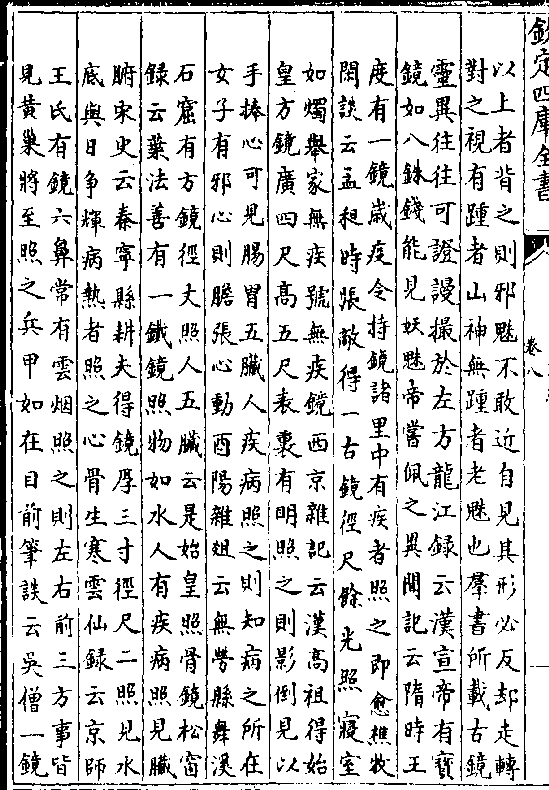 欽定四庫全書
卷八
以上者背之則邪魅不敢近自見其形必反却走轉
對之視有踵者山神無踵者老魅也羣書所載古鏡
靈異往往可證謾撮於左方龍江録云漢宣帝有寶
鏡如八銖錢能見妖魅帝嘗佩之異聞記云隋時王
度有一鏡歲疫令持鏡諸里中有疾者照之即愈樵牧
閑談云孟昶時張敵得一古鏡徑尺餘光照寢室
如燭舉家無疾號無疾鏡西京雜記云漢高祖得始
皇方鏡廣四尺高五尺表裏有明照之則影倒見以
手捧心可見腸胃五臟人疾病照之則知病之所在
女子有邪心則膽張心動酉陽雜俎云無勞縣舞溪
石窟有方鏡徑丈照人五臟云是始皇照骨鏡松窗
録云葉法善有一鐵鏡照物如水人有疾病照見臟
腑宋史云秦寧縣耕夫得鏡厚三寸徑尺二照見水
底與日争輝病熱者照之心骨生寒雲仙録云京師
王氏有鏡六鼻常有雲烟照之則左右前三方事皆
見黄巢將至照之兵甲如在目前筆談云吳僧一鏡